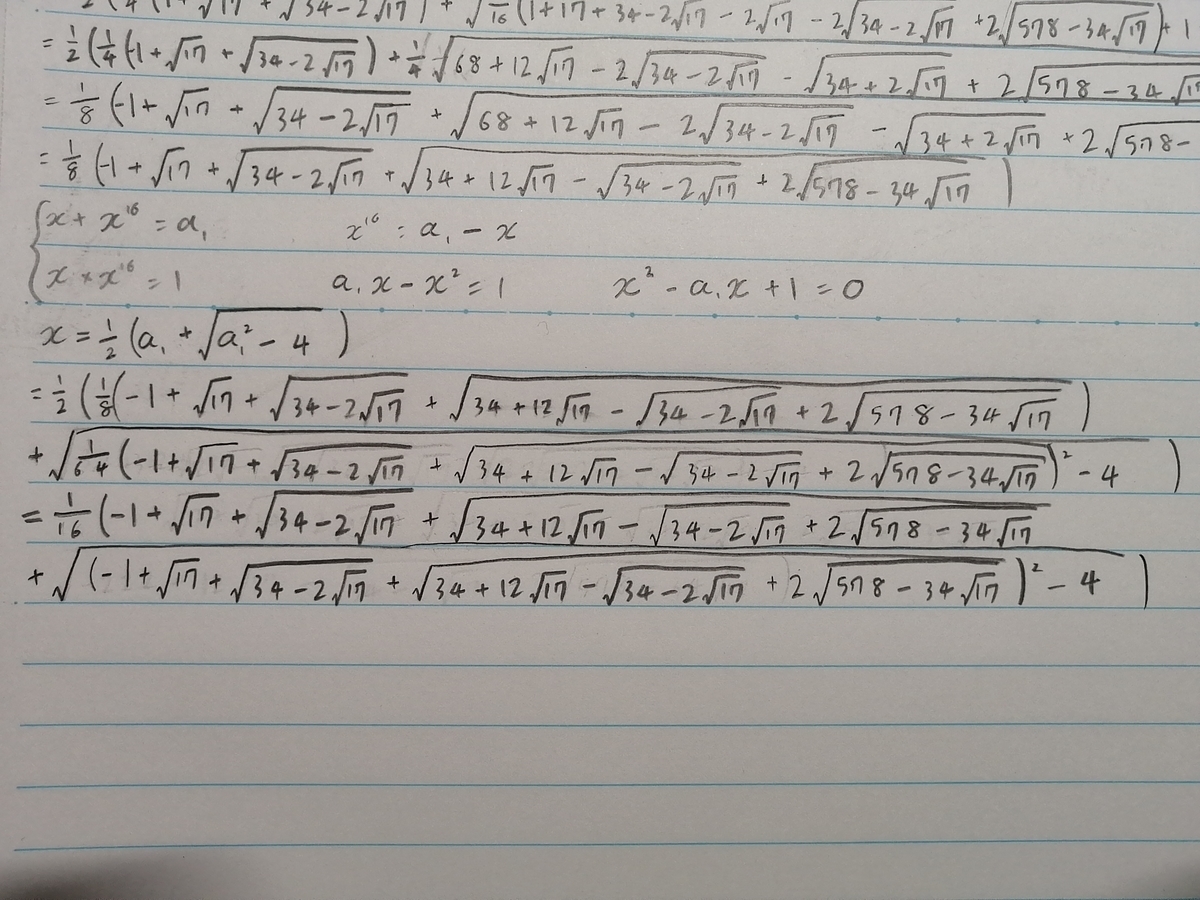 (1+√17 + √34-2√17) + √1/16 (1+17+34-2√17 - 2√17 - 2√34-2√17 + 2√578-34√17) + 1
= 1/2 (1/4 (-1+√17 + √34-2√17) + 1/4 √68+12√17 - 2√34-2√17 - √34+2√17 + 2√578-34√17
= 1/8 (-1+√17 + √34-2√17 + √68+12√17 - 2√34-2√17 - √34+2√17 + 2√578-
= 1/8 (-1+√17 + √34-2√17 + √34+12√17 - √34-2√17 + 2√578-34√17)
{x + x¹⁶ = a₁ x¹⁶ = a₁ - x
x × x¹⁶ = 1 a₁x - x² = 1 x² - a₁x + 1 = 0
x = 1/2 (a₁ + √a₁² - 4)
= 1/2 (1/8 (-1+√17 + √34-2√17 + √34+12√17 - √34-2√17 + 2√578-34√17)
+ √1/64 (-1+√17 + √34-2√17 + √34+12√17 - √34-2√17 + 2√578-34√17)² - 4)
= 1/16 (-1+√17 + √34-2√17 + √34+12√17 - √34-2√17 + 2√578-34√17
+ √(-1+√17 + √34-2√17 + √34+12√17 - √34-2√17 + 2√578-34√17)² - 4)